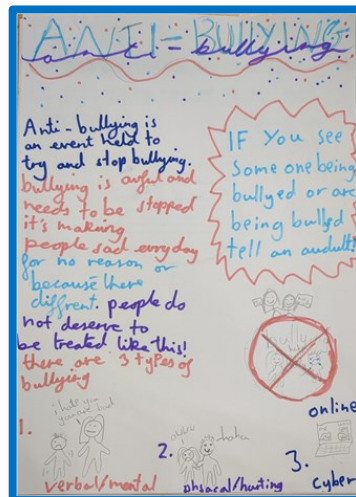 ANTI-BULLYING
anti-bullying
Anti-bullying is
an event held to
try and stop bullying.
bullying is awful and
needs to be stopped
it's making
people sad everyday
for no reason or
because there
diffrent. people do
not deserve to
be treated like this!
there are 3 types of
bullying
IF You see
Some one being
bullyed or are
being bullyed
tell an audult!
online
1.
i hate you
you are bad
verbal/mental
2.
haha
phsacal/hurting
3.
cyber